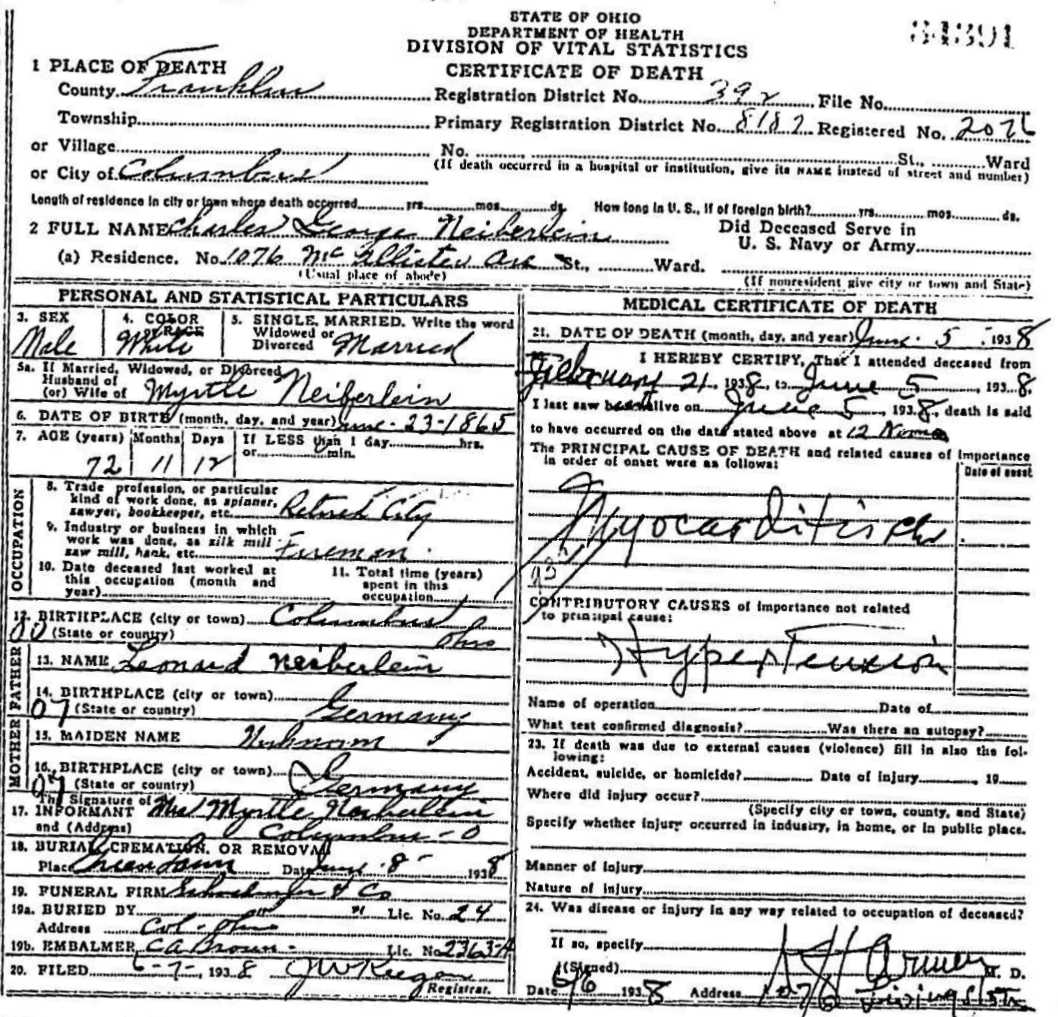 STATE OF OHIO
DEPARTMENT OF HEALTH
DIVISION OF VITAL STATISTICS
CERTIFICATE OF DEATH
34391
1 PLACE OF DEATH
County Franklin Registration District No. 392 File No.
Township Primary Registration District No. 8187 Registered No. 2076
or Village No. St., Ward
or City of Columbus (If death occurred in a hospital or institution, give its NAME instead of street and number)
Length of residence in city or town where death occurred yrs. mos. ds. How long in U. S., if of foreign birth? yrs. mos. ds.
2 FULL NAME Charles George Neiberlein Did Deceased Serve in U. S. Navy or Army
(a) Residence. No. 1076 McAllister Ave St., Ward.
(Usual place of abode) (If nonresident give city or town and State)
PERSONAL AND STATISTICAL PARTICULARS
3. SEX Male
4. COLOR or RACE White
5. SINGLE, MARRIED. Write the word
Widowed or
Divorced Married
5a. If Married, Widowed, or Divorced
Husband of
(or) Wife of Myrtle Neiberlein
6. DATE OF BIRTH (month, day, and year) June-23-1865
7. AGE (years) Months Days If LESS than 1 day hrs.
or min.
72 11 12
OCCUPATION
8. Trade profession, or particular
kind of work done, as spinner,
sawyer, bookkeeper, etc. Retired City
9. Industry or business in which
work was done, as silk mill
saw mill, bank, etc. Fireman
10. Date deceased last worked at
this occupation (month and
year)
11. Total time (years)
spent in this
occupation
12. BIRTHPLACE (city or town) Columbus
00 (State or country) Ohio
FATHER
13. NAME Leonard Neiberlein
14. BIRTHPLACE (city or town)
07 (State or country) Germany
MOTHER
15. MAIDEN NAME Unknown
16. BIRTHPLACE (city or town)
07 (State or country) Germany
The Signature of
17. INFORMANT Mrs Myrtle Neiberlein
and (Address) Columbus-O
18. BURIAL, CREMATION, OR REMOVAL
Place Green Lawn Date June-8- 1938
19. FUNERAL FIRM Schoedinger & Co
19a. BURIED BY " " Lic. No. 24
Address Col-Ohio
19b. EMBALMER CA Brown- Lic. No 2363-A
20. FILED 6-7-, 1938 JW Keegan
Registrar.
MEDICAL CERTIFICATE OF DEATH
21. DATE OF DEATH (month, day, and year) June 5 1938
I HEREBY CERTIFY, That I attended deceased from
February 21, 1938, to June 5, 1938.
I last saw alive on June 5, 1938, death is said
to have occurred on the date stated above at 12 Noon
The PRINCIPAL CAUSE OF DEATH and related causes of importance
in order of onset were as follows:
Date of onset
Myocarditis Chr
CONTRIBUTORY CAUSES of importance not related
to principal cause:
HyperTension
Name of operation Date of
What test confirmed diagnosis? Was there an autopsy?
23. If death was due to external causes (violence) fill in also the fol-
lowing:
Accident, suicide, or homicide? Date of injury , 19
Where did injury occur?
(Specify city or town, county, and State)
Specify whether injury occurred in industry, in home, or in public place.
Manner of injury
Nature of injury
24. Was disease or injury in any way related to occupation of deceased?
If so, specify
(Signed) M. D.
Date 6/6 1938 Address 1076